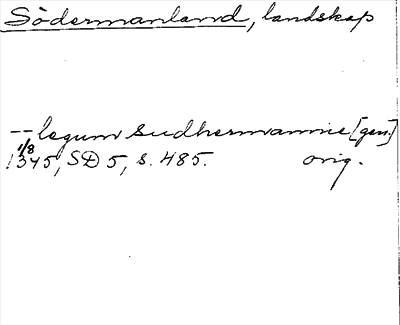 Södermanland, landskap
-- legum sudhermannie [gen.]
1/8
1345, SD 5, s. 485. orig.